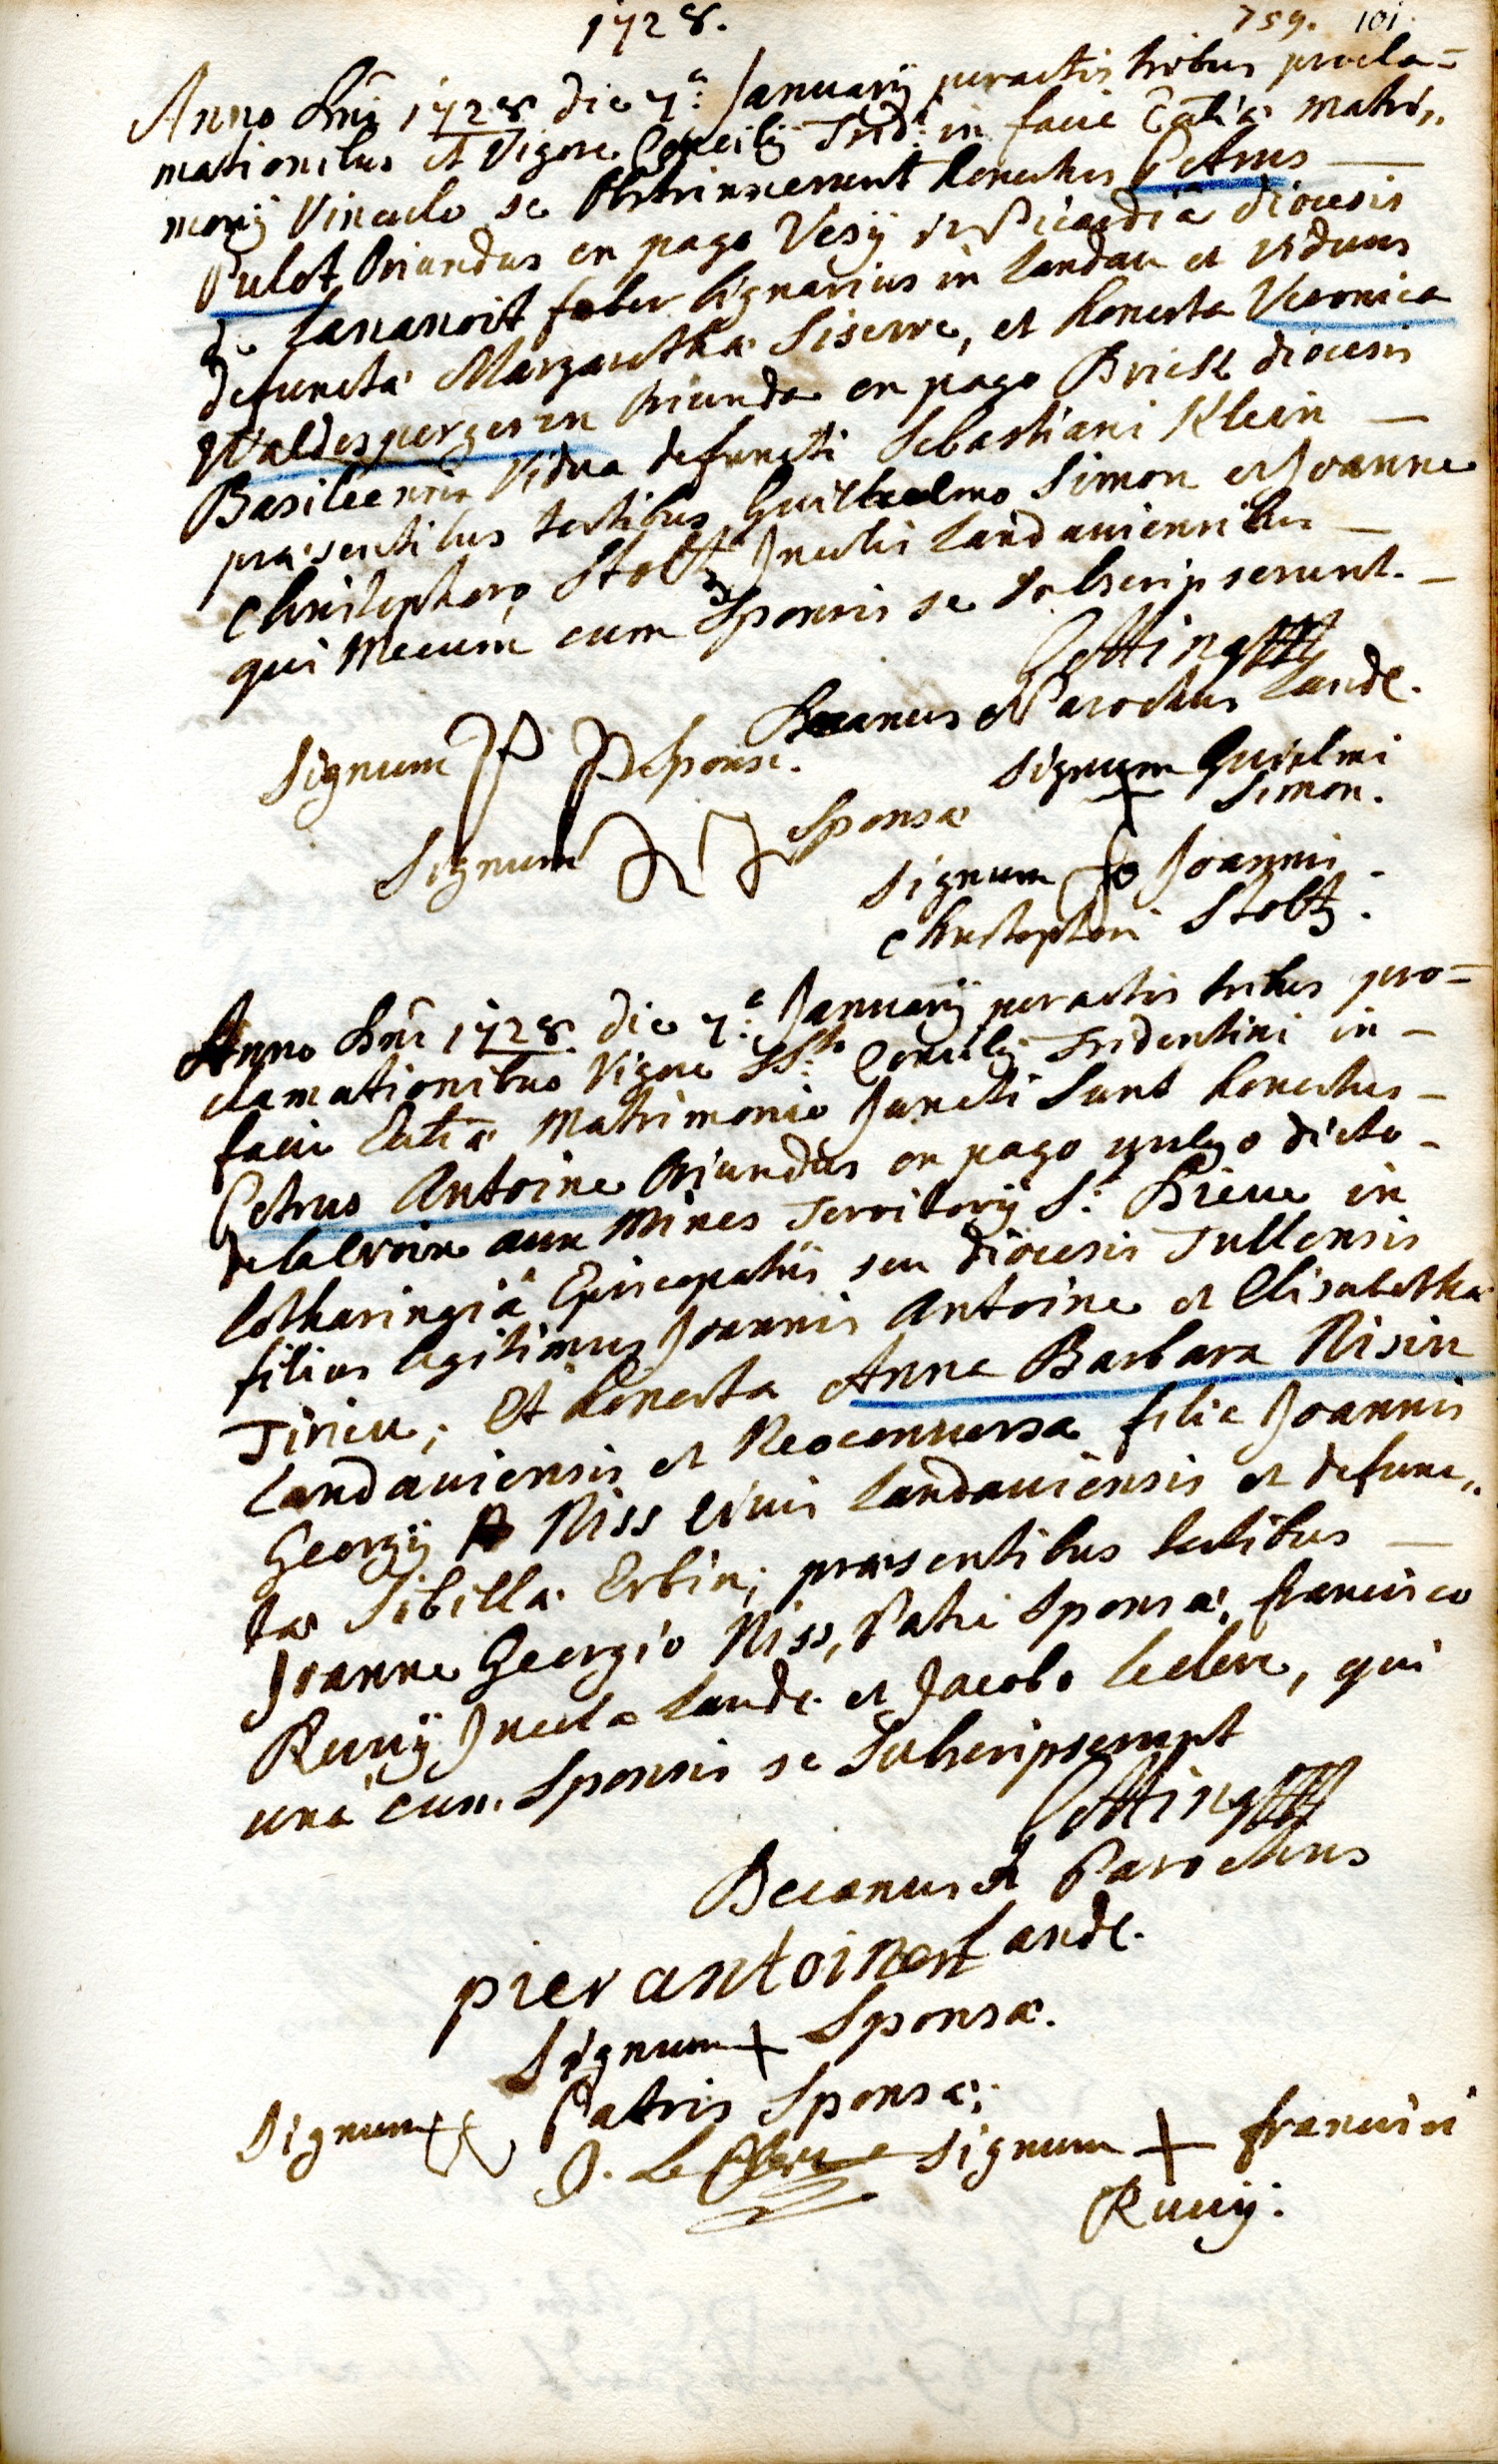 1728.
759. 101.
Anno Dñi 1728 die 7.a Januarij peractis tribus procla=
mationibus et Vigore Concilij Trid.i in facie Eccl̄iæ matri,,
monij Vinculo se obstrinxerunt honestus Petrus —
Pulot Oriundus ex pago Vesij in Picardiâ diocesis
de faber lignarius in Landau et viduus
defunctæ Margarethæ Siserre, et honesta Veronica
Waldespergerin Oriunda ex pago diocesis
Basileensis Vidua defuncti Sebastiani Klein —
præsentibus testibus Guilhelmo Simon et Joanne
Christophoro Stoltz Incolis Landaviensibus —
qui Mecum cum Sponsis se subscripserunt. —
Decanus et Parochus Land.
Signum Sponsi.
Signum Guielmi
Simon.
Signum Sponsæ
Signum Joannis
Christophori Stoltz.
Anno Dñi 1728 die 7.a Januarij peractis tribus pro=
clamationibus Vigore SSti Concilij Tridentini in —
facie Eccl̄iæ Matrimonio Juncti sunt honestus —
Petrus Antoine Oriundus ex pago vulgo dicto —
delacroix aux Mines Territorij St. Dieu in
Lotharingiâ Episcopatûs seu diocesis Tullensis
filius legitimus Joannis Antoine et Elisabethæ
Tirieu; et honesta Anna Barbara Nisin
Landaviensis et Neoconversa filia Joannis
Georgij Niss Civis Landaviensis et defunc,,
tæ Sibillæ Erbin; præsentibus testibus —
Joanne Georgio Niss, Patre Sponsæ, francisco
Remij Incola Land. et Jacobo leclerc, qui
unâ cum Sponsis se Subscripserunt
Decanus et Parochus
Land.
pier antoine
Signum + Sponsæ.
Signum Patris Sponsæ;
J. Le Clerc
Signum + francisci
Remij.